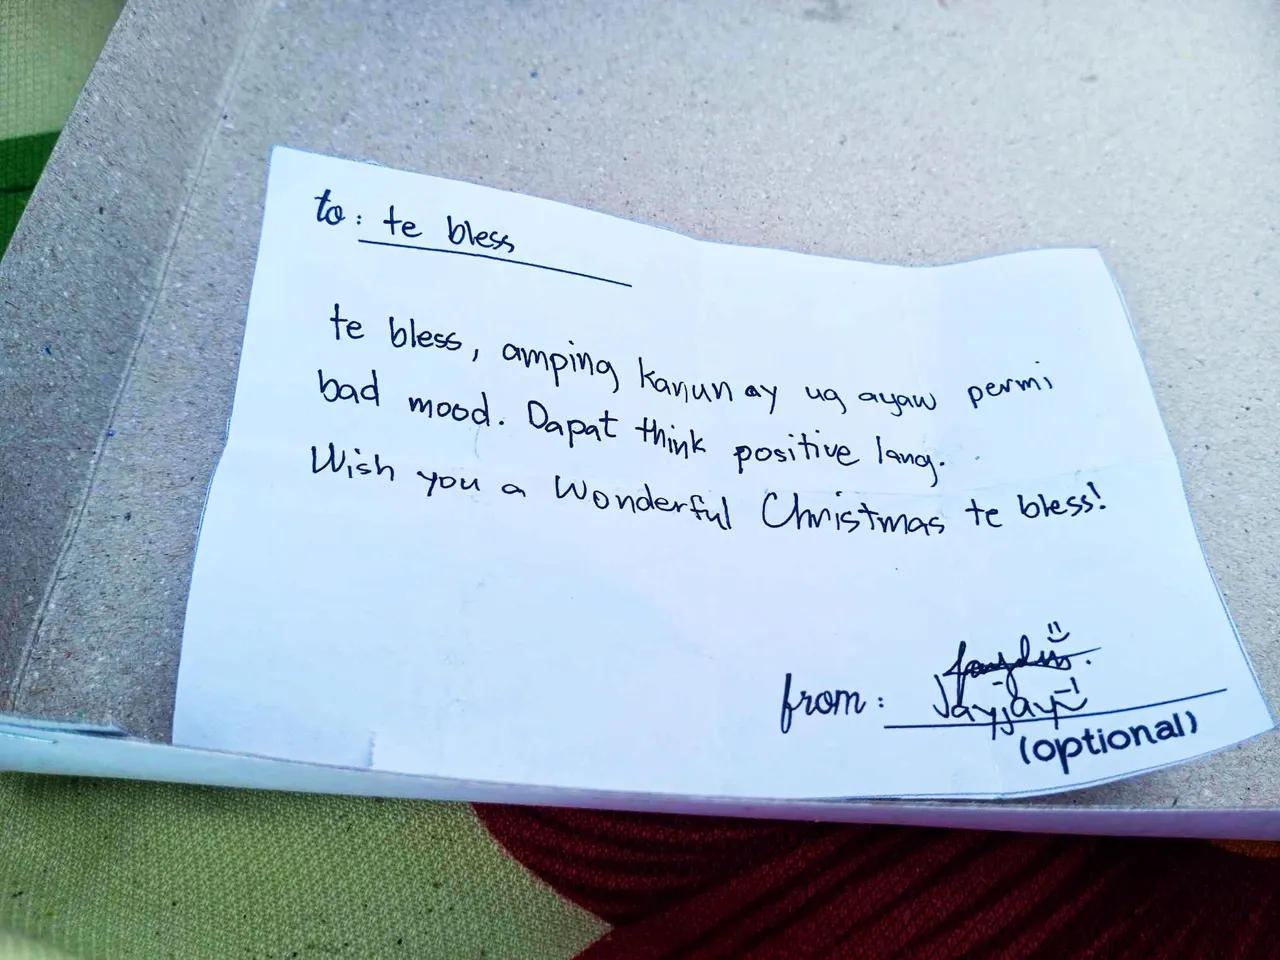 to: te bless
te bless, amping kanunay ug ayaw permi
bad mood. Dapat think positive lang.
Wish you a Wonderful Christmas te bless!
from: Jayjay
(optional)